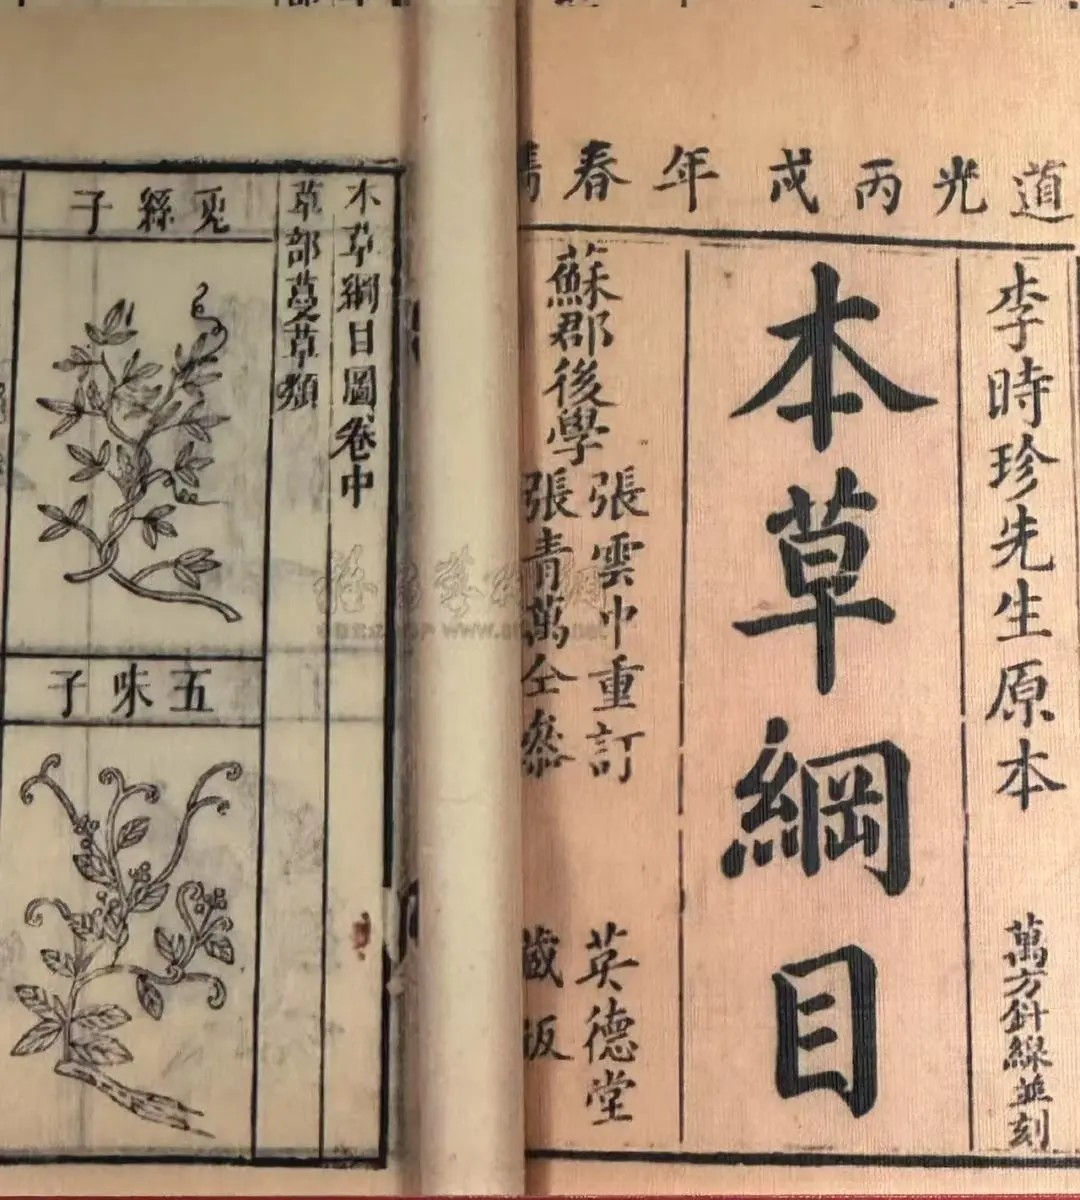 道光丙戌年春鐫
李時珍先生原本
萬方針線並刻
本草綱目
蘇郡後學
張雲中重訂
張青萬仝參
英德堂
藏板
本草綱目圖卷中
草部蔓草類
兎絲子
五味子